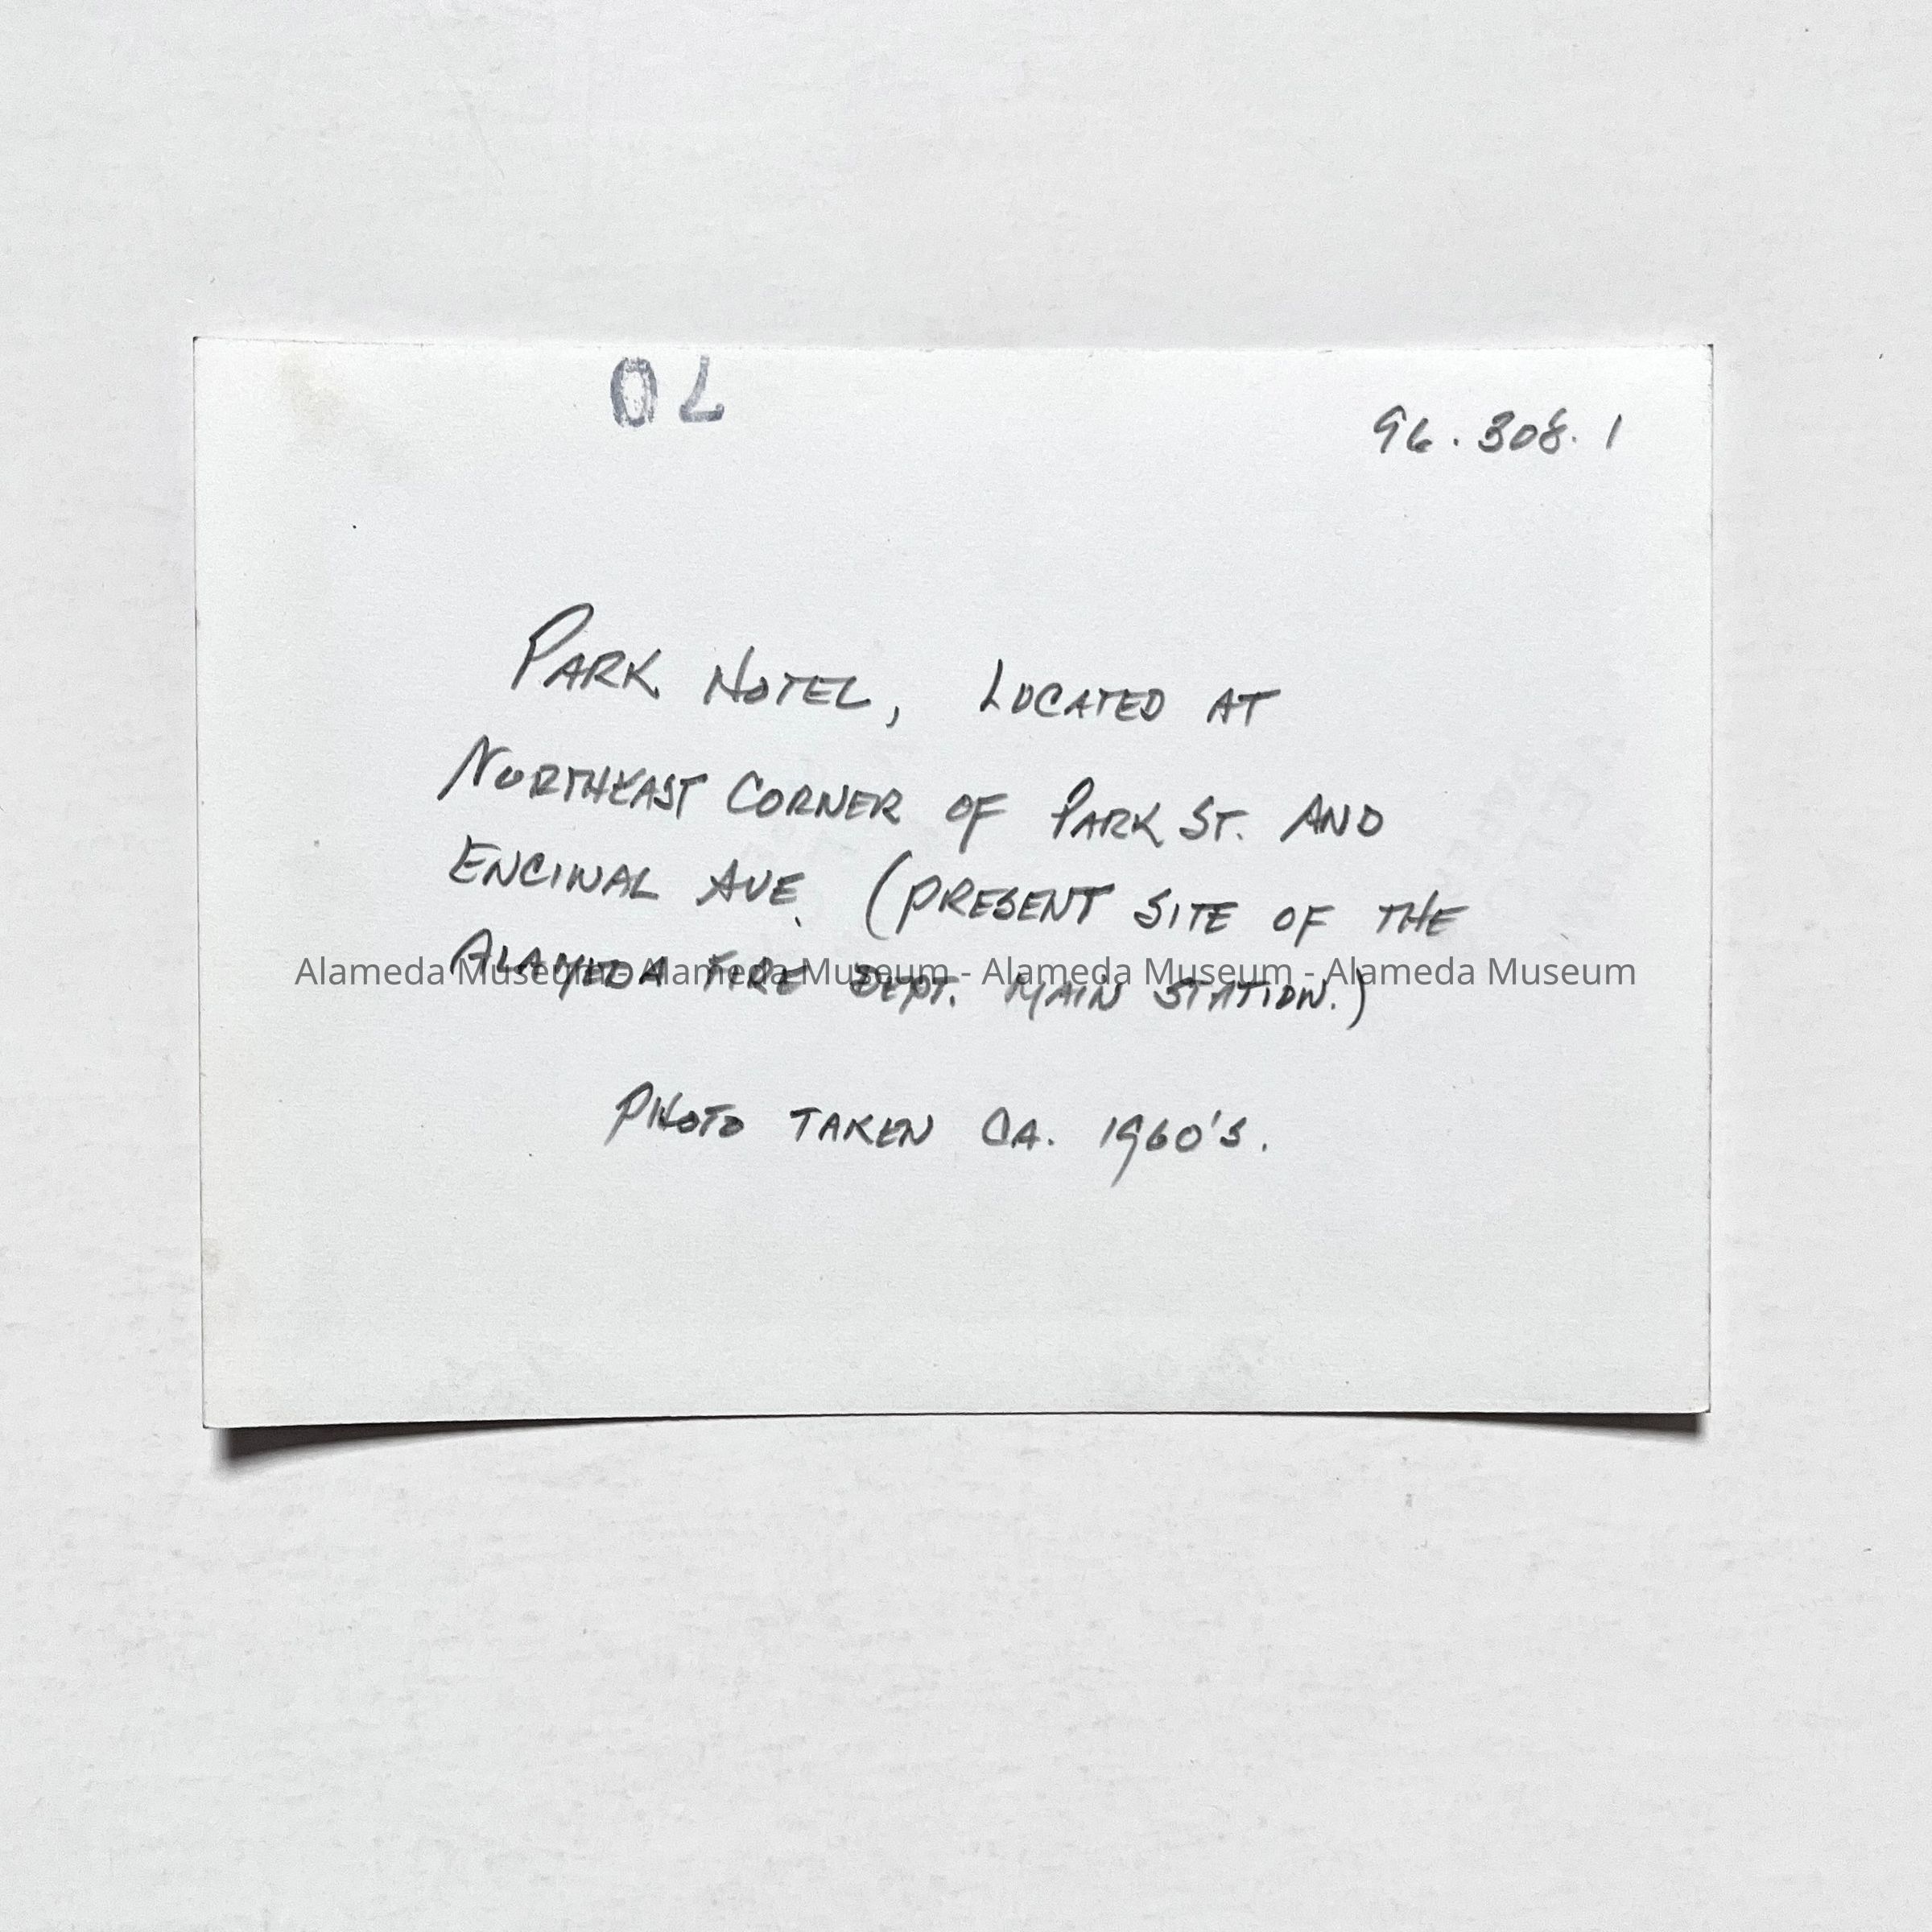 70
96.308.1
PARK HOTEL, LOCATED AT
NORTHEAST CORNER OF PARK ST. AND
ENCINAL AVE. (PRESENT SITE OF THE
ALAMEDA FIRE DEPT. MAIN STATION.)
Alameda Museum - Alameda Museum - Alameda Museum - Alameda Museum
PHOTO TAKEN CA. 1960'S.